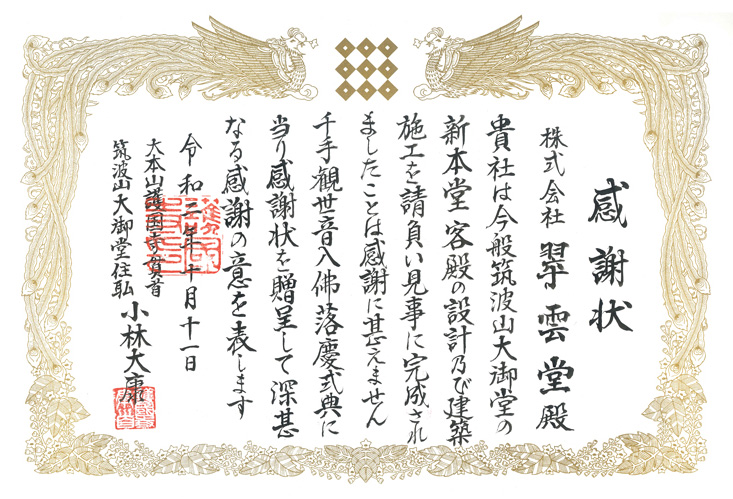 感謝状
株式会社 翠雲堂殿
貴社は今般筑波山大御堂の
新本堂客殿の設計乃び建築
施工を請負い見事に完成され
ましたことは感謝に甚えません
千手観世音入佛落慶式典に
当り感謝状を贈呈して深甚
なる感謝の意を表します
令和二年十月十一日
大本山護国寺貫首
筑波山大御堂住職
小林大康